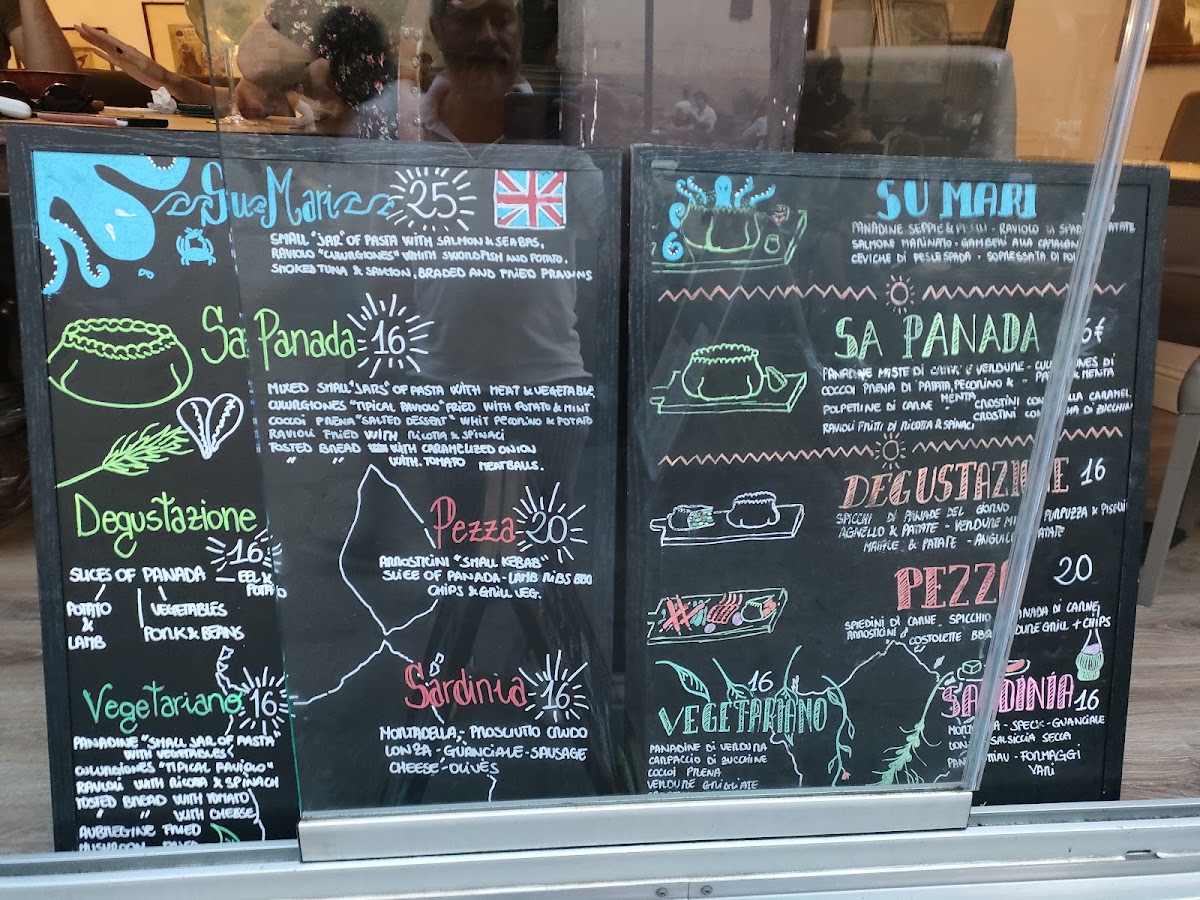 Su Mari 25
SMALL "JAR" OF PASTA WITH SALMON & SEABAS,
RAVIOLO "CULURGIONES" WHITH SWORDFISH AND POTATO,
SMOKED TUNA & SALMON, BRADED AND FRIED PRAWNS
Sa Panada 16
MIXED SMALL "JARS" OF PASTA WITH MEAT & VEGETABLE,
CULURGIONES "TIPICAL RAVIOLO" FRIED WITH POTATO & MINT
COCCOI PRENA "SALTED DESSERT" WHIT PECORINO & POTATO
RAVIOLI FRIED WITH RICOTTA & SPINACI
TOSTED BREAD WITH CARAMELIZED ONION
" " WITH TOMATO MEATBALLS.
Degustazione 16
SLICES OF PANADA
EEL & POTATO
POTATO & LAMB
VEGETABLES
PORK & BEANS
Pezza 20
ARROSTICINI "SMALL KEBAB"
SLICE OF PANADA - LAMB RIBS BBQ
CHIPS & GRILL VEG.
Vegetariano 16
PANADINE "SMALL JAR OF PASTA"
WITH VEGETABLES
CULURGIONES "TIPICAL RAVIOLO"
RAVIOLI WITH RICOTA & SPINACH
TOSTED BREAD WITH TOMATO
" " WITH CHEESE
AUBREGINE FRIED
MUSHROOM FRIED
Sardinia 16
MORTADELLA, PROSCIUTTO CRUDO
LONZA - GUANCIALE - SAUSAGE
CHEESE - OLIVES
SU MARI
PANADINE SEPPIE & - RAVIOLO
SALMONE MARINATO - GAMBERI ALLA
CEVICHE DI PESCE SPADA - SOPRESSATA DI
SA PANADA 6€
PANADINE MISTE DI CARNE E VERDURE -
COCCOI PRENA DI PATATA, PECORINO & MENTA
POLPETTINE DI CARNE - CROSTINI CON CARAMEL
RAVIOLI FRITTI DI RICOTTA & SPINACI CROSTINI
DEGUSTAZIONE 16
SPICCHI DI PANADE DEL GIORNO
AGNELLO & PATATE - VERDURE PURPUZZA & PISELLI
& PATATE - ANGUILLA
PEZZA 20
SPIEDINI DI CARNE, SPICCHIO PANADA DI CARNE,
ARROSTICINI COSTOLETTE BBQ GRIL + CHIPS
VEGETARIANO 16
PANADINE DI VERDURA
CARPACCIO DI ZUCCHINE
COCCOI PRENA
VERDURE GRIGLIATE
SARDINIA 16
- SPECK - GUANCIALE
SALSICCIA SECCA
- FORMAGGI
VARI